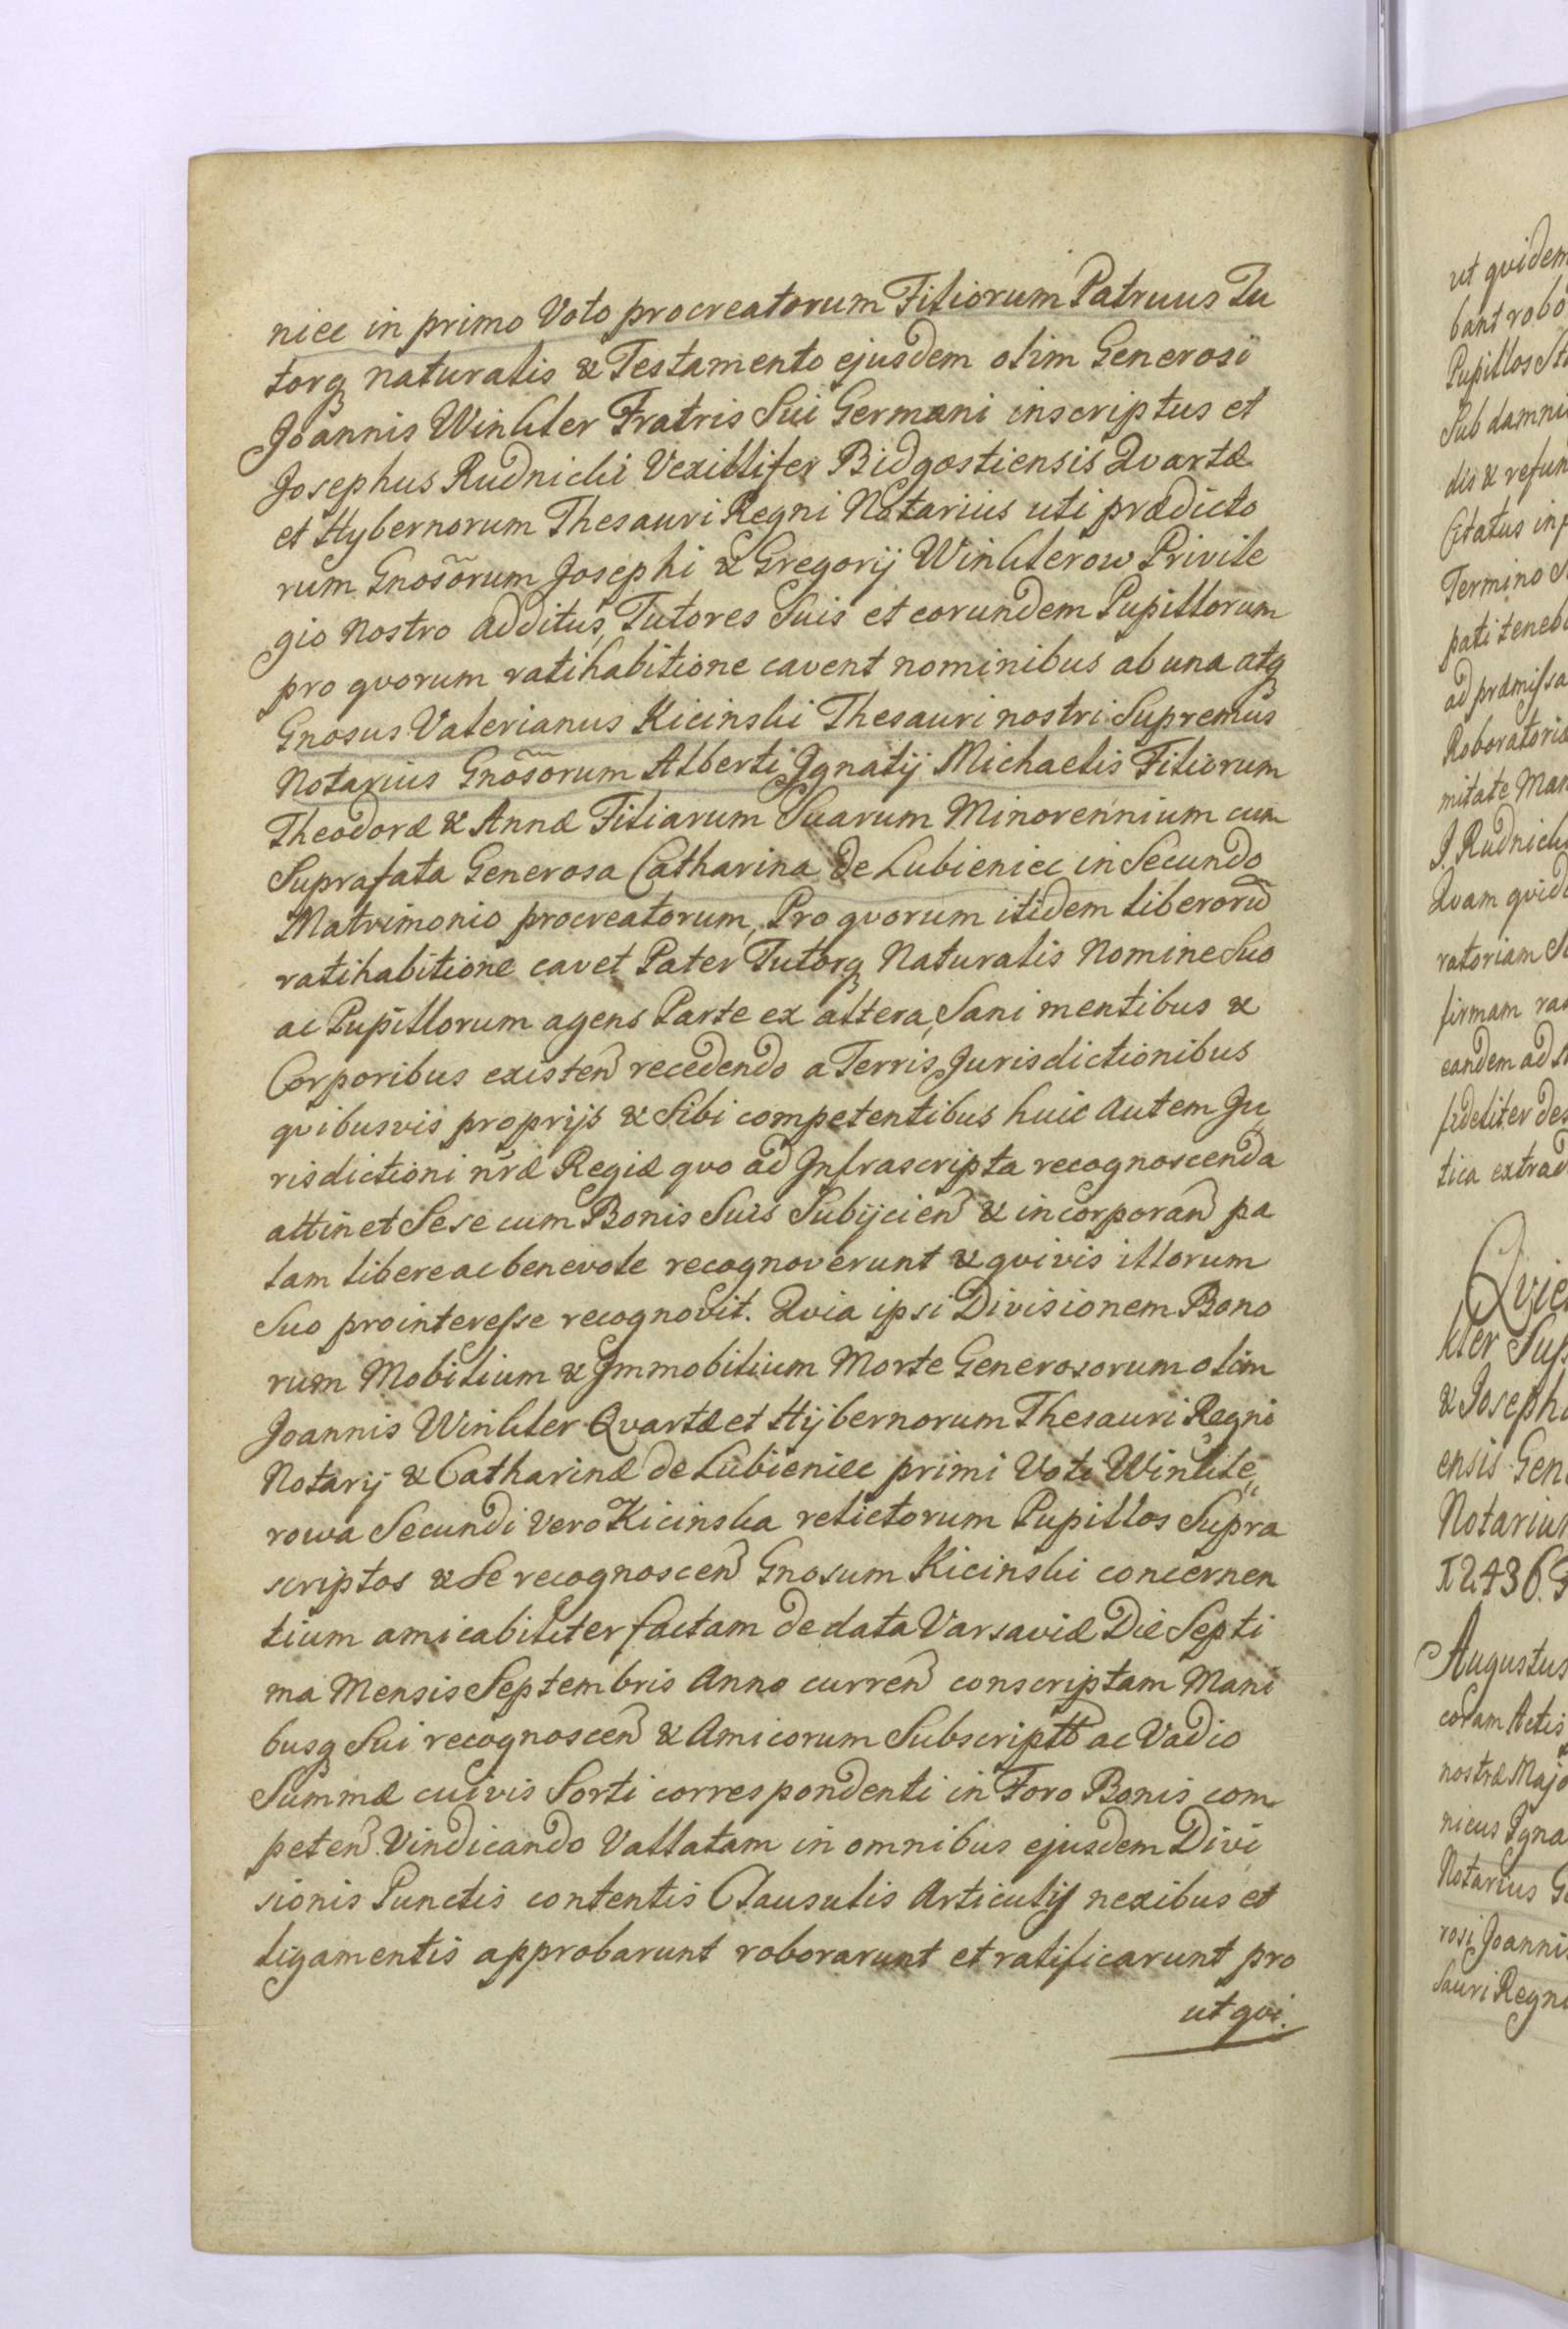 niec in primo Voto procreatorum Filiorum Patruus Tu
torq naturalis & Testamento ejusdem olim Generosi
Joannis Winkler Fratris Sui Germani inscriptus et
Josephus Rudnicki Vexillifer Bidgostiensis Qvartæ
et Hybernorum Thesauri Regni Notarius uti prædicto
rum Gnosõrum Josephi & Gregorij Winklerow Privile
gio Nostro additus, Tutores Suis et eorundem Pupillorum
pro qvorum ratihabitione cavent nominibus ab una atq
Gnosus Valerianus Kicinski Thesauri nostri Supremus
Notarius Gnosõrum Alberti Jgnatij Michaelis Filiorum
Theodoræ & Annæ Filiarum Suarum Minorennium cum
Suprafata Generosa Catharina de Lubieniec in Secundo
Matrimonio procreatorum, Pro qvorum itidem liberorũ
ratihabitione cavet Pater Tutorq Naturalis Nomine Suo
ac Pupillorum agens Parte ex altera, Sani mentibus &
Corporibus existen̄ recedendo a Terris, Jurisdictionibus
qvibusvis proprijs & Sibi competentibus huic autem Ju
risdictioni nræ Regiæ qvo ad Jnfrascripta recognoscenda
attinet Sese cum Bonis Suis Subijcien̄ & incorporan̄ pa
lam libere ac benevole recognoverunt & qvivis illorum
Suo prointeresse recognovit. Qvia ipsi Divisionem Bono
rum Mobilium & Jmmobilium Morte Generosorum olim
Joannis Winkler Qvartæ et Hybernorum Thesauri Regni
Notarij & Catharinæ de Lubieniec primi Voti Winkle„
rowa Secundi vero Kicinska relictorum Pupillos Supra
scriptos & Se recognoscen̄ Gnosum Kicinski concernen
tium amicabiliter factam de data Varsaviæ Die Septi
ma Mensis Septembris Anno curren̄ conscriptam Mani
busq Sui recognoscen̄ & Amicorum Subscriptt ac Vadio
Summæ cuivis Sorti correspondenti in Foro Bonis com
peten̄ Vindicando Vallatam in omnibus ejusdem Divi
sionis Punctis contentis Clausulis Articulis nexibus et
ligamentis approbarunt roborarunt et ratificarunt pro
ut qvi.
ut qvidem
bant robo
Pupillos
Sub damni
dis & refun
Citatus in
Termino
pati teneb
ad præmissa
Roboratoria
mitate Man
J. Rudnick
Qvam qvid
ratoriam
firmam ra
eandem ad
fideliter de
tica extrad
Qvie
kler Sup
& Joseph
ensis Gen
Notariu
12436
Augustus
coram Actis
nostræ Majo
nicus Jgna
Notarius
rosi Joanni
sauri Regni